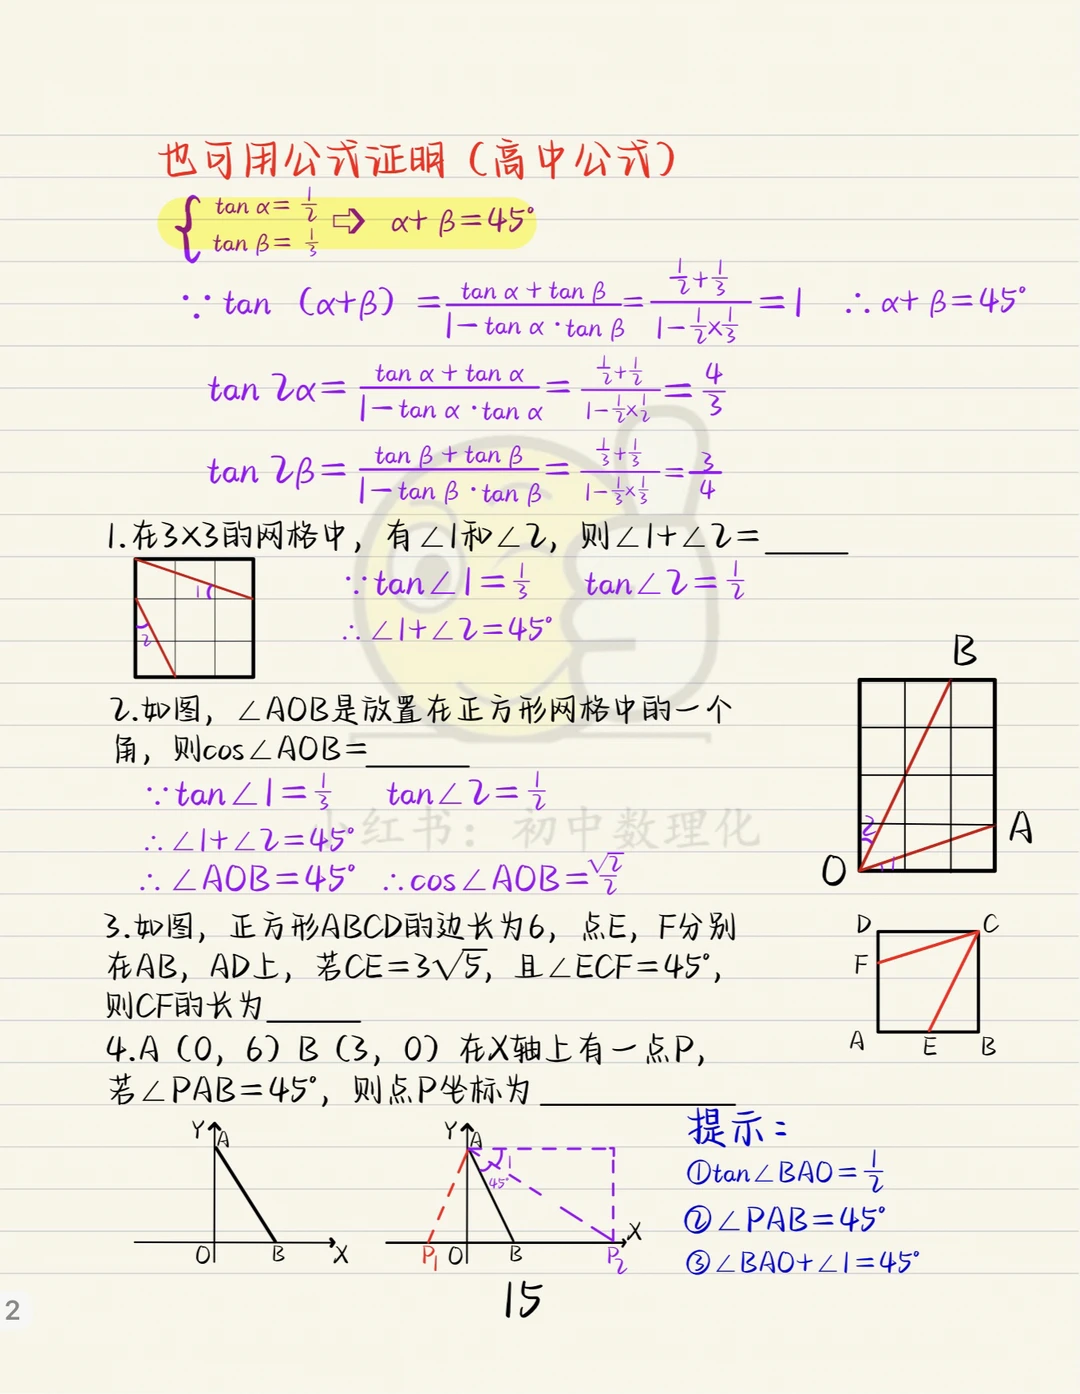 也可用公式证明（高中公式）
{ tan α = 1/2
tan β = 1/3 ⇨ α + β = 45°
∵ tan （α+β） = (tan α + tan β)/(1 − tan α · tan β) = (1/2 + 1/3)/(1 − 1/2 × 1/3) = 1 ∴ α + β = 45°
tan 2α = (tan α + tan α)/(1 − tan α · tan α) = (1/2 + 1/2)/(1 − 1/2 × 1/2) = 4/3
tan 2β = (tan β + tan β)/(1 − tan β · tan β) = (1/3 + 1/3)/(1 − 1/3 × 1/3) = 3/4
1.在3×3的网格中，有∠1和∠2，则∠1+∠2=____
1
2
∵tan∠1=1/3 tan∠2=1/2
∴∠1+∠2=45°
2.如图，∠AOB是放置在正方形网格中的一个
角，则cos∠AOB=____
B
A
O
2
1
∵tan∠1=1/3 tan∠2=1/2
∴∠1+∠2=45°
∴∠AOB=45° ∴cos∠AOB=√2/2
小红书：初中数理化
3.如图，正方形ABCD的边长为6，点E，F分别
在AB，AD上，若CE=3√5，且∠ECF=45°，
则CF的长为____
D C
F
A E B
4.A（0，6）B（3，0）在X轴上有一点P，
若∠PAB=45°，则点P坐标为____
Y A
O B X
Y A
1
45°
P1 O B P2 X
提示：
①tan∠BAO=1/2
②∠PAB=45°
③∠BAO+∠1=45°
15
2